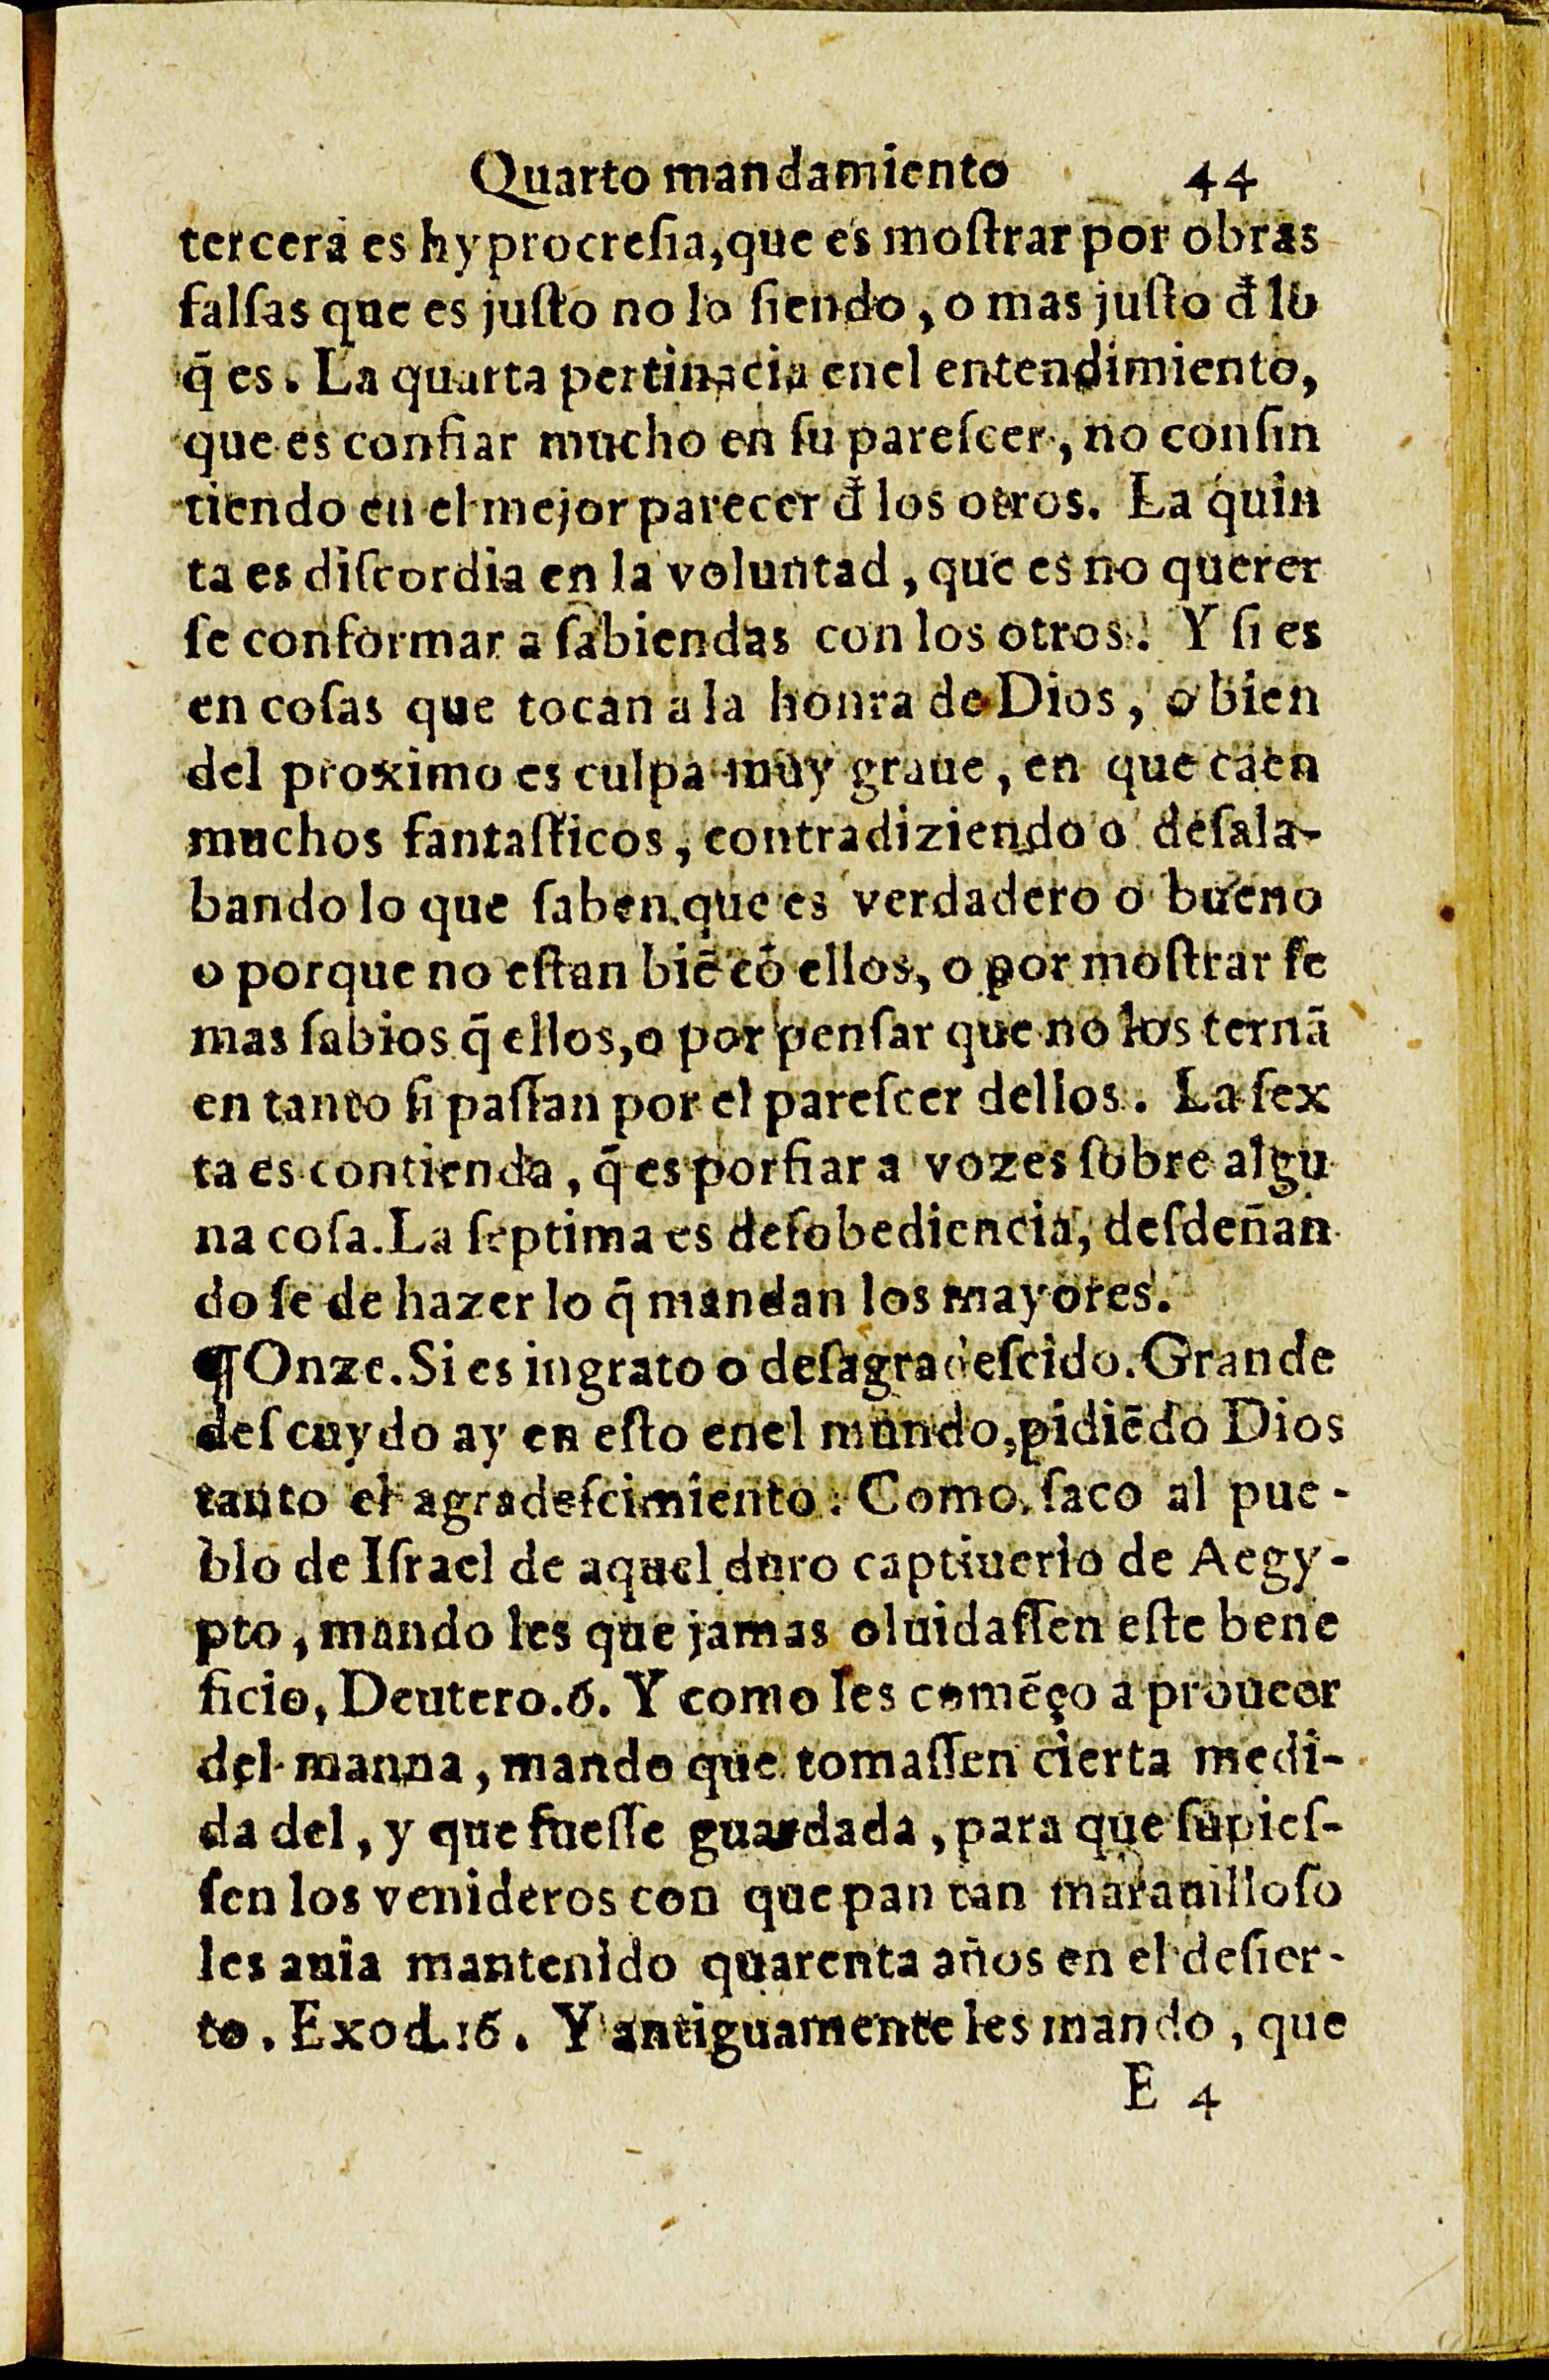 Quarto mandamiento 44
tercera es hyprocreſia, que es moſtrar por obras
falſas que es juſto no lo ſiendo, o mas juſto đ lo
q̃ es. La quarta pertinacia enel entendimiento,
que es confiar mucho en ſu pareſcer, no conſin
tiendo en el mejor parecer đ los otros. La quin
ta es diſcordia en la voluntad, que es no querer
ſe conformar a ſabiendas con los otros. Y ſi es
en coſas que tocan a la honra de Dios, o bien
del proximo es culpa muy graue, en que caen
muchos fantaſticos, contradiziendo o deſala-
bando lo que ſaben que es verdadero o bueno
o porque no eſtan biẽ cõ ellos, o por moſtrar ſe
mas ſabios q̃ ellos, o por penſar que no los ternã
en tanto ſi paſſan por el pareſcer dellos. La ſex
ta es contienda, q̃ es porfiar a vozes ſobre algu
na coſa. La ſeptima es deſobediencia, deſdeñan
do ſe de hazer lo q̃ mandan los mayores.
¶ Onze. Si es ingrato o deſagradeſcido. Grande
deſcuydo ay en eſto enel mundo, pidiẽdo Dios
tanto el agradeſcimiento. Como ſaco al pue-
blo de Iſrael de aquel duro captiuerio de Aegy-
pto, mando les que jamas oluidaſſen eſte bene
ficio, Deutero.6. Y como les comẽço a proueer
del manna, mando que tomaſſen cierta medi-
da del, y que fueſſe guardada, para que ſupieſ-
ſen los venideros con que pan tan marauilloſo
les auia mantenido quarenta años en el deſier-
to. Exod.16. Y antiguamente les mando, que
E 4